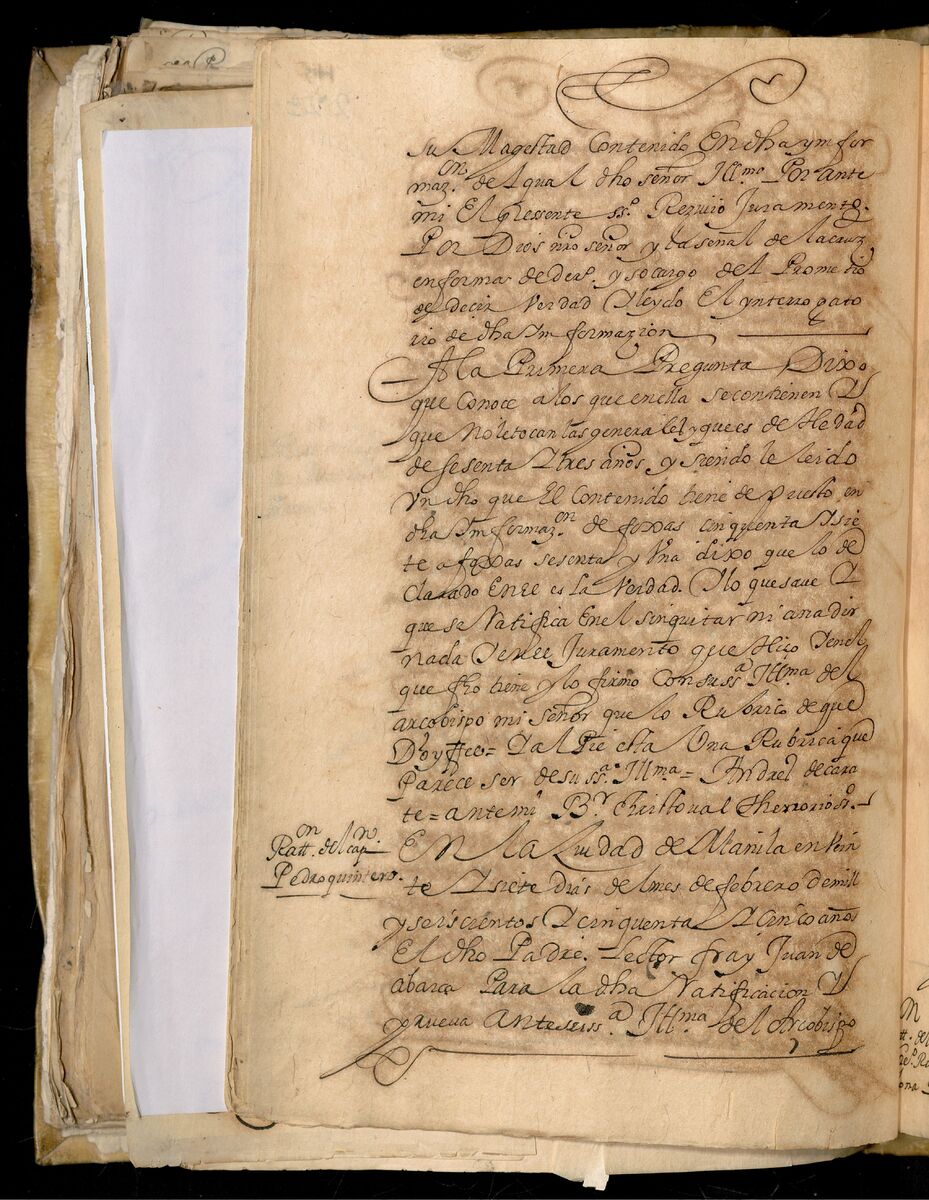 su Magestad Contenido En dha ynfor
mazon. del qual dho señor Illmo Por ante
mi El pressente sso. Reziuio Juramento.
Por Dios nro señor y la señal de la cruz
en forma de dero. y so cargo del Prometio
de decir Verdad Y leydo El ynterrogato
rio de dha Informazion
A la Primera Pregunta Dixo
que Conoce a los que en ella se contienen Y
que No le tocan las generales y que es de Hedad
de sesenta Y tres años, y siendo le leido
Vn dho que El Contenido tiene depuesto en
dha Informazon de foxas cinquenta Y sie
te a foxas sesenta y Vna dixo que lo de
Clarado En el es la Verdad. Y lo que saue Y
que se Ratifica En el sin quitar ni anadir
nada Y en el Juramento que Hiço Y en el
que fho tiene y lo firmo Con su ssa Illma del
arcobispo mi señor que lo Rubrico de que
Doy ffee= Y al Pie esta Una Rubrica que
Parece ser de su ssa. Illma= Andres de cara
te= ante mi Br Christoual Therorio sso.
Raton. del capn.
Pedro quintero.
En la Ciudad de Manila en Vein
te Y siete dias del mes de febrero de mill
y seiscientos Y cinquenta Y cinco años
El dho Padre. Lector fray Juan de
abarca Para la dha Ratificacion Y
prueua ante su ssa. Illma del Arcobispo